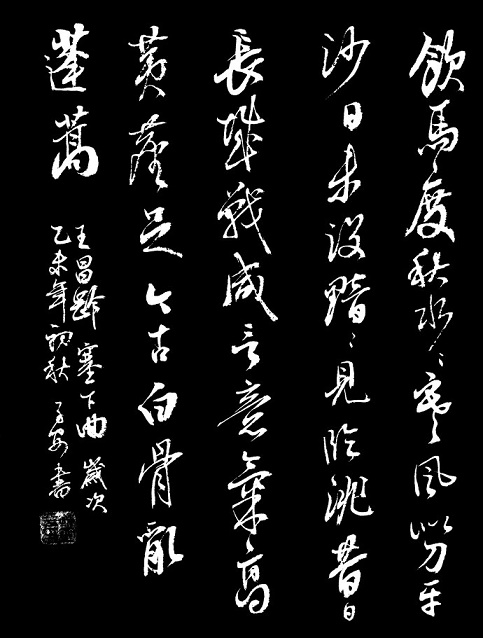 飲馬度秋水〻寒風似刀平
沙日未沒黯〻見臨洮昔日
長城戰咸言意氣高
黃塵足今古白骨亂
蓬蒿
王昌齡塞下曲歲次
乙未年初秋子安書